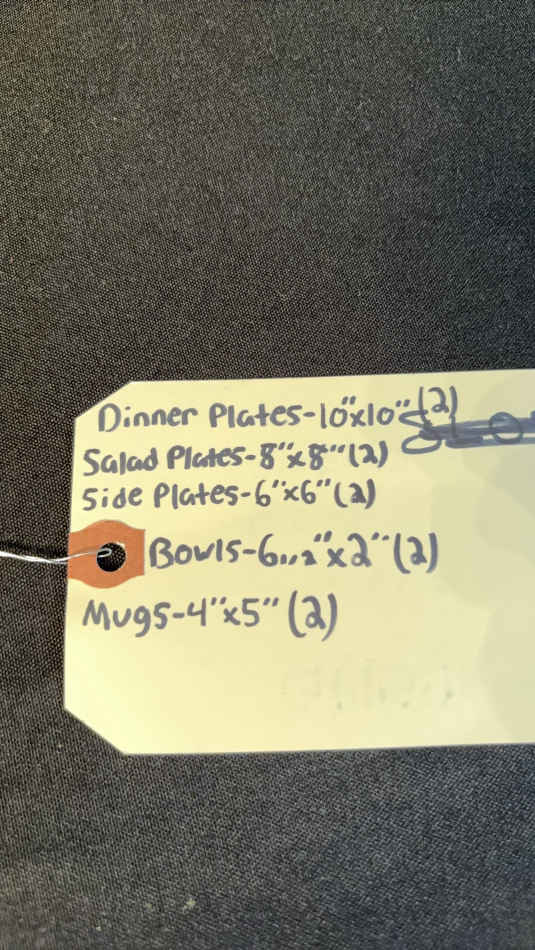 Dinner Plates-10"x10" (2)
Salad Plates-8"x8" (2)
Side Plates-6"x6" (2)
Bowls- x2" (2)
Mugs-4"x5" (2)